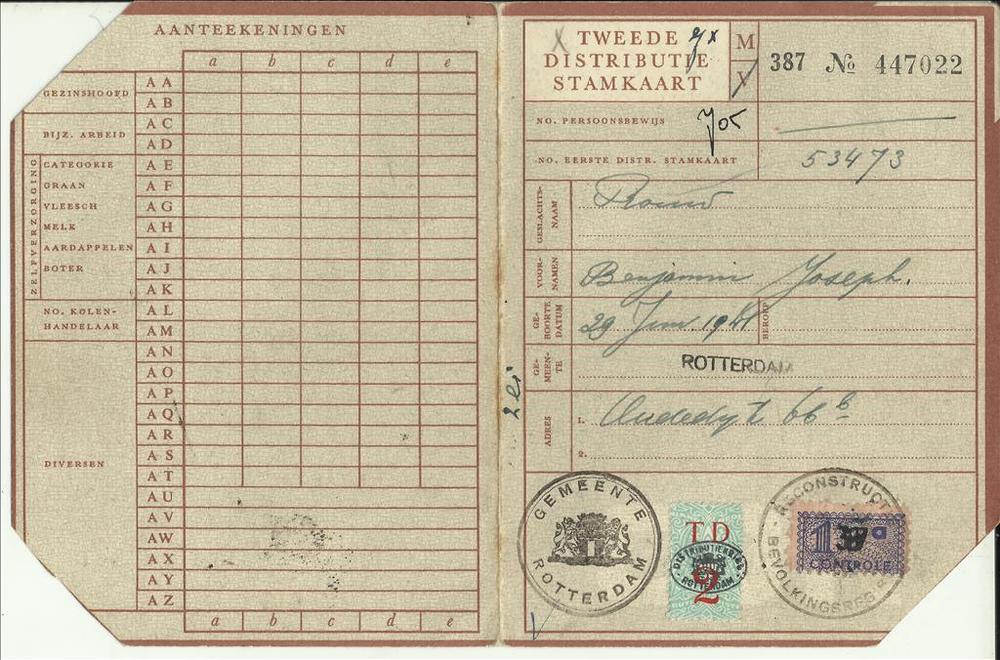 AANTEEKENINGEN
a b c d e
GEZINSHOOFD
AA
AB
BIJZ. ARBEID
AC
AD
ZELFVERZORGING
CATEGORIE
AE
GRAAN
AF
VLEESCH
AG
MELK
AH
AARDAPPELEN
AI
BOTER
AJ
AK
NO. KOLEN-
HANDELAAR
AL
AM
DIVERSEN
AN
AO
AP
AQ
AR
AS
AT
AU
AV
AW
AX
AY
AZ
a b c d e
2 ei
TWEEDE
DISTRIBUTIE
STAMKAART
M
V
387 № 447022
NO. PERSOONSBEWIJS
NO. EERSTE DISTR. STAMKAART
53473
GESLACHTS-
NAAM
VOOR-
NAMEN
Benjamin Joseph.
GE-
BOORTE
DATUM
29 Juni 1941
BEROEP
GE-
MEEN-
TE
ROTTERDAM
ADRES
1. Oudedijk 66b
2.
GEMEENTE
ROTTERDAM
TD
2
DISTRIBUTIEKRING
ROTTERDAM
RECONSTRUCT
BEVOLKINGSREG
CONTROLE